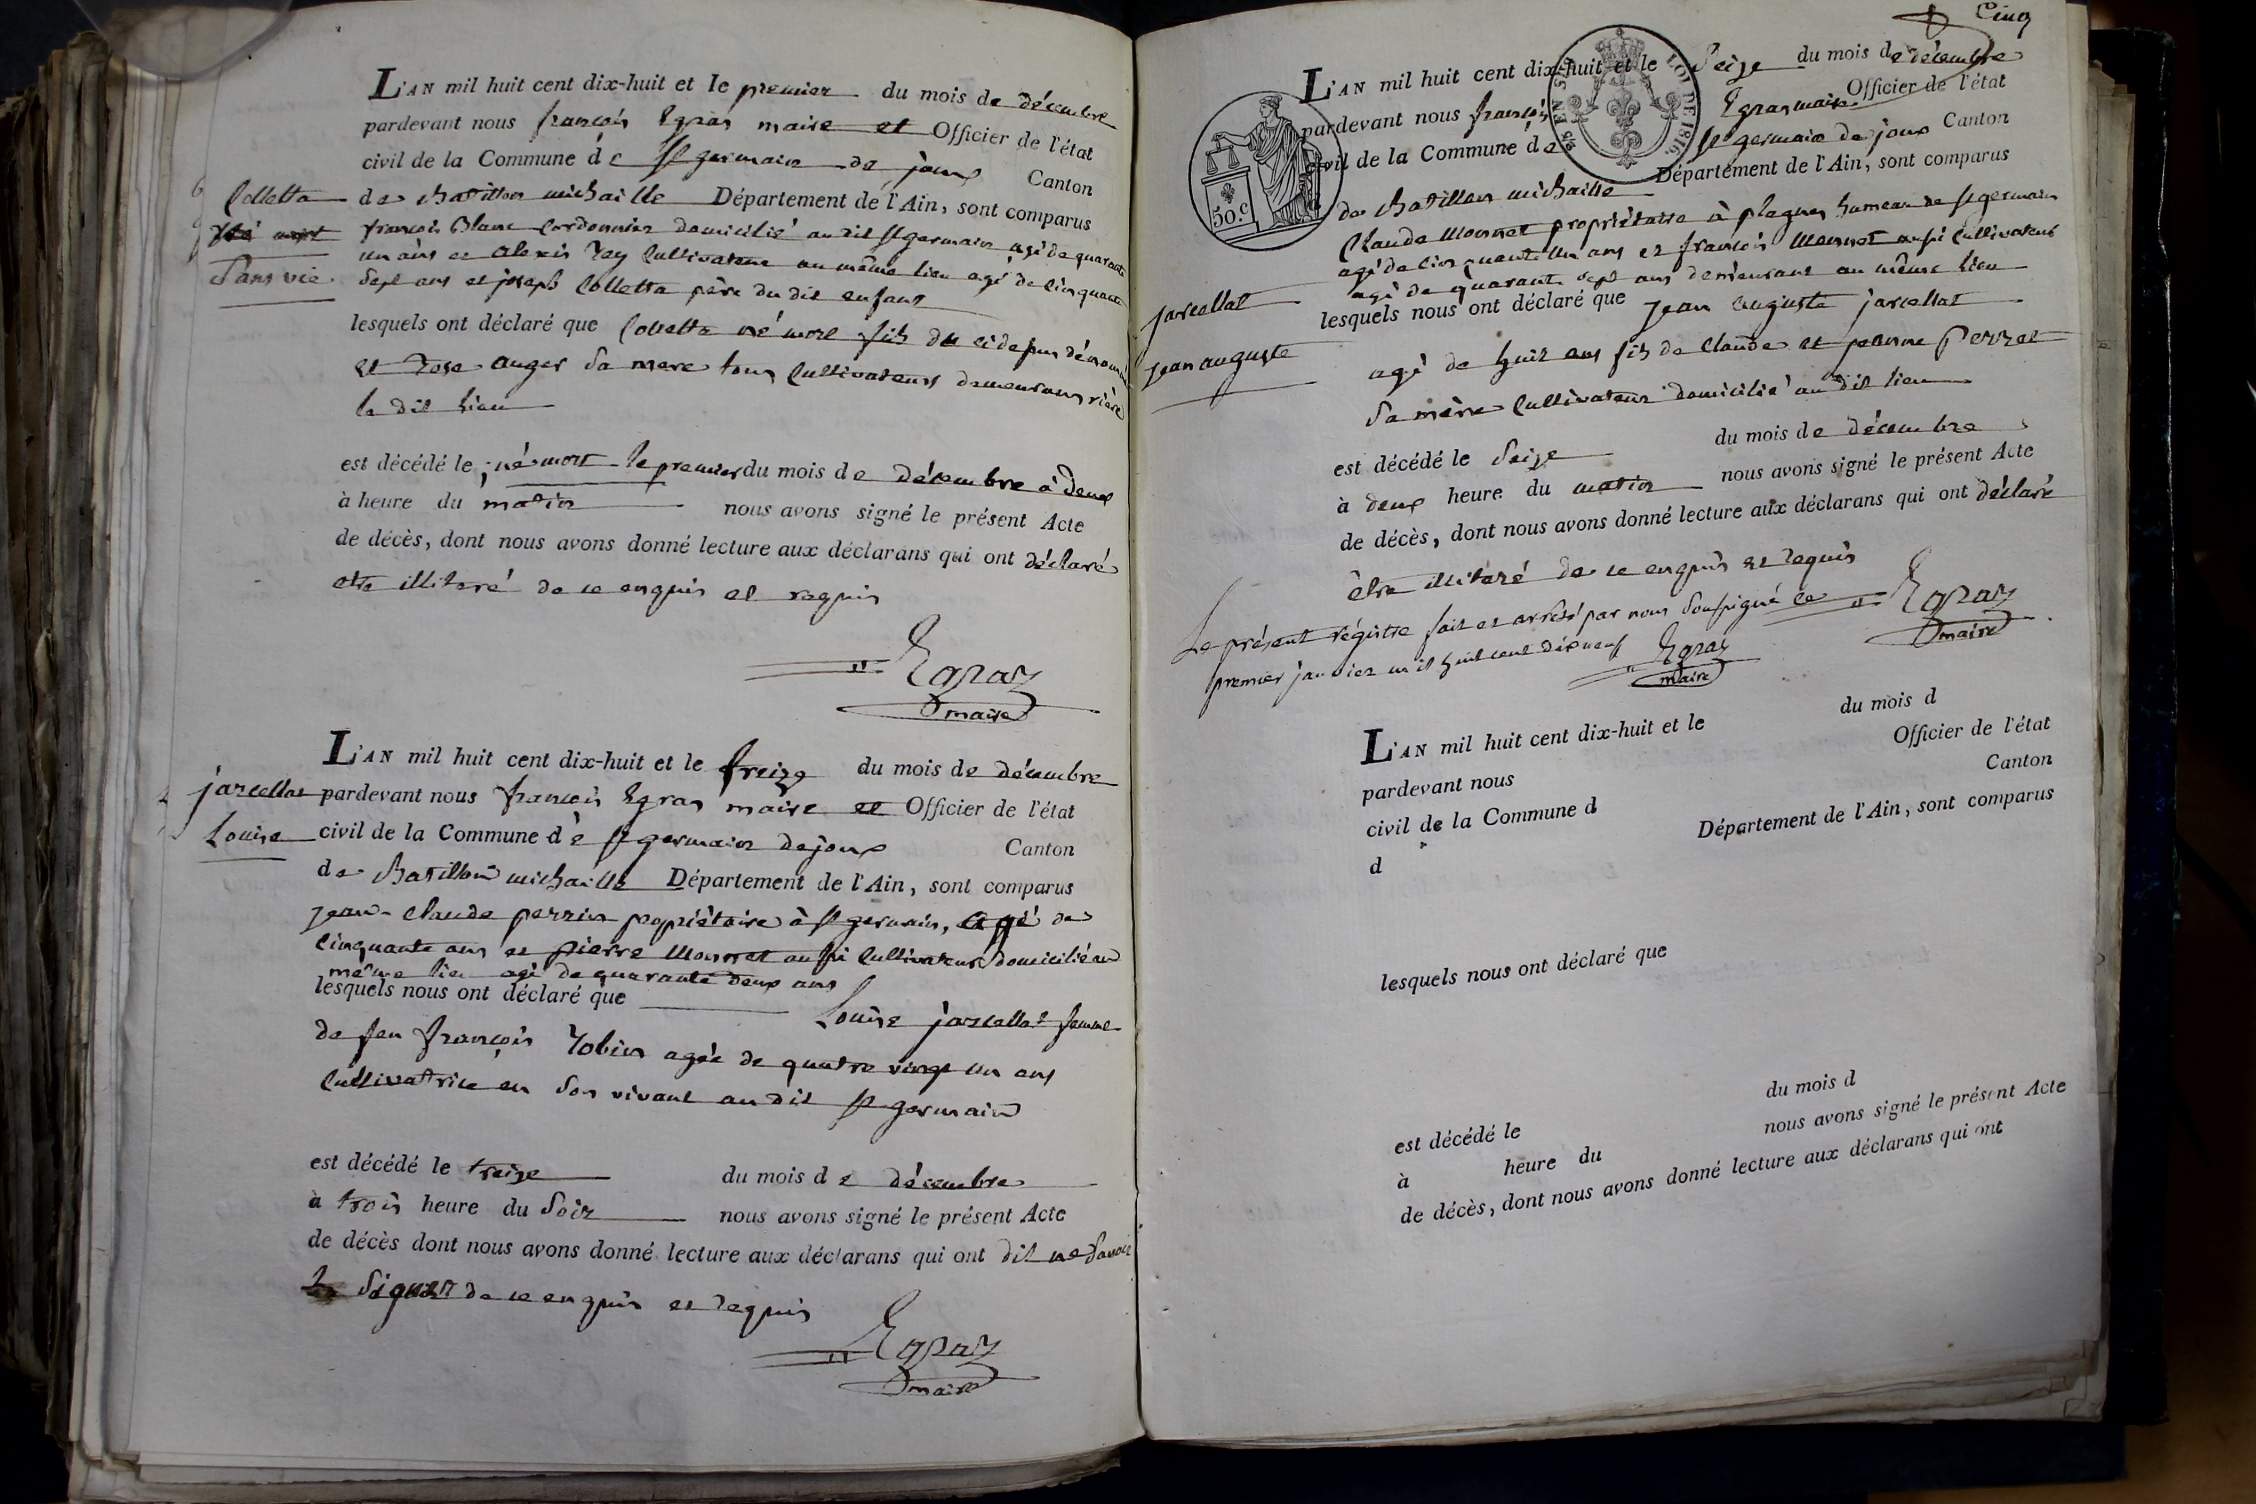 L'AN mil huit cent dix-huit et le premier du mois de décembre
pardevant nous françois Egraz maire et Officier de l'état
civil de la Commune de St germain de joux Canton
Colletta
de chatillon michaille Département de l'Ain, sont comparus
né mort
françois Blanc Cordonnier domicilié au dit St germain agé de quarante
un ans et alexis Rey Cultivateur au même lieu agé de Cinquante
Sans vie
Sept ans et joseph Colletta père du dit enfant
lesquels ont déclaré que Colletta né mort fils du ci depus dénommé
et Rose auger Sa mere tous Cultivateurs demeurans rière
le dit lieu
est décédé le né mort le premier du mois de décembre à deux
à heure du matin nous avons signé le présent Acte
de décès, dont nous avons donné lecture aux déclarans qui ont déclaré
etre illiteré de ce enquis et requis
Egraz
maire
L'AN mil huit cent dix-huit et le treize du mois de décembre
jarcellat
pardevant nous françois Egraz maire et Officier de l'état
Louise
civil de la Commune de St germain de joux Canton
de chatillon michaille Département de l'Ain, sont comparus
jean-Claude perrin propriétaire à St germain, agé de
Cinquante ans et pierre Monnet aussi Cultivateur domicilié au
même lieu agé de quarante deux ans
lesquels nous ont déclaré que Louise jarcellat femme
de feu françois Robin agée de quatre vingt un ans
Cultivatrice en Son vivant au dit St germain
est décédé le treize du mois de décembre
à trois heure du Soir nous avons signé le présent Acte
de décès dont nous avons donné lecture aux déclarans qui ont dit ne Savoir
Signer de ce enquis et requis
Egraz
maire
Cinq
L'AN mil huit cent dix-huit et le Seize du mois de décembre
pardevant nous françois Egraz maire Officier de l'état
civil de la Commune de St germain de joux Canton
LOI DE 1816.
50.c
de chatillon michaille Département de l'Ain, sont comparus
Claude Monnet propriétaire à plagnes hameau de St germain
agé de Cinquante un ans et françois Monnet aussi Cultivateur
agé de quarante sept ans demeurant au même lieu
jarcellat
lesquels nous ont déclaré que jean auguste jarcellat
jean auguste
agé de huit ans fils de Claude et jeanne Perret
Sa mère Cultivateur domicilié au dit lieu
est décédé le Seize du mois de décembre
à deux heure du matin nous avons signé le présent Acte
de décès, dont nous avons donné lecture aux déclarans qui ont déclaré
être illiteré de ce enquis et requis
Egraz
maire
Le présent régistre fait et arrêté par nous Soussigné le
premier janvier mil huit cent dix neuf Egraz
maire
L'AN mil huit cent dix-huit et le du mois d
pardevant nous Officier de l'état
civil de la Commune d Canton
d Département de l'Ain, sont comparus
lesquels nous ont déclaré que
est décédé le du mois d
à heure du nous avons signé le présent Acte
de décès, dont nous avons donné lecture aux déclarans qui ont